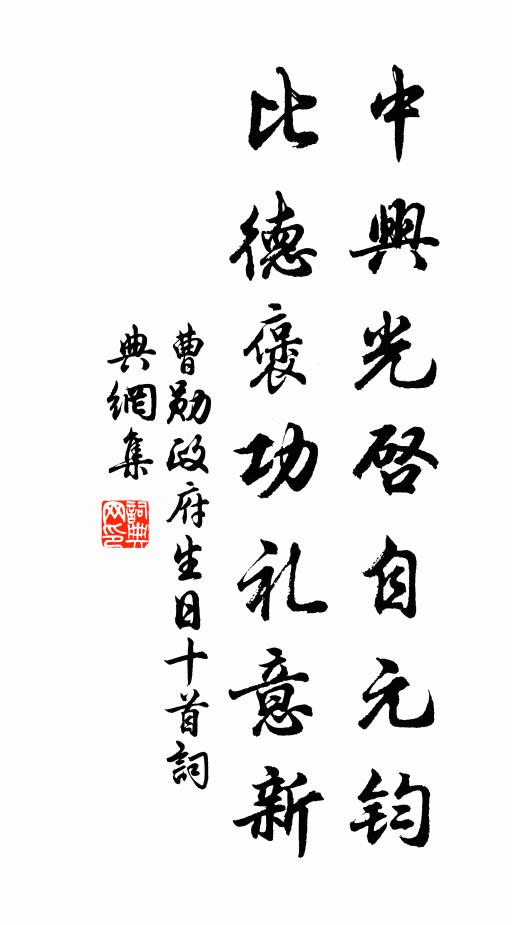 中興光啓自元鈞
比德褒功礼意新
曹勛政府生日十首詞
典網集
詞典网印